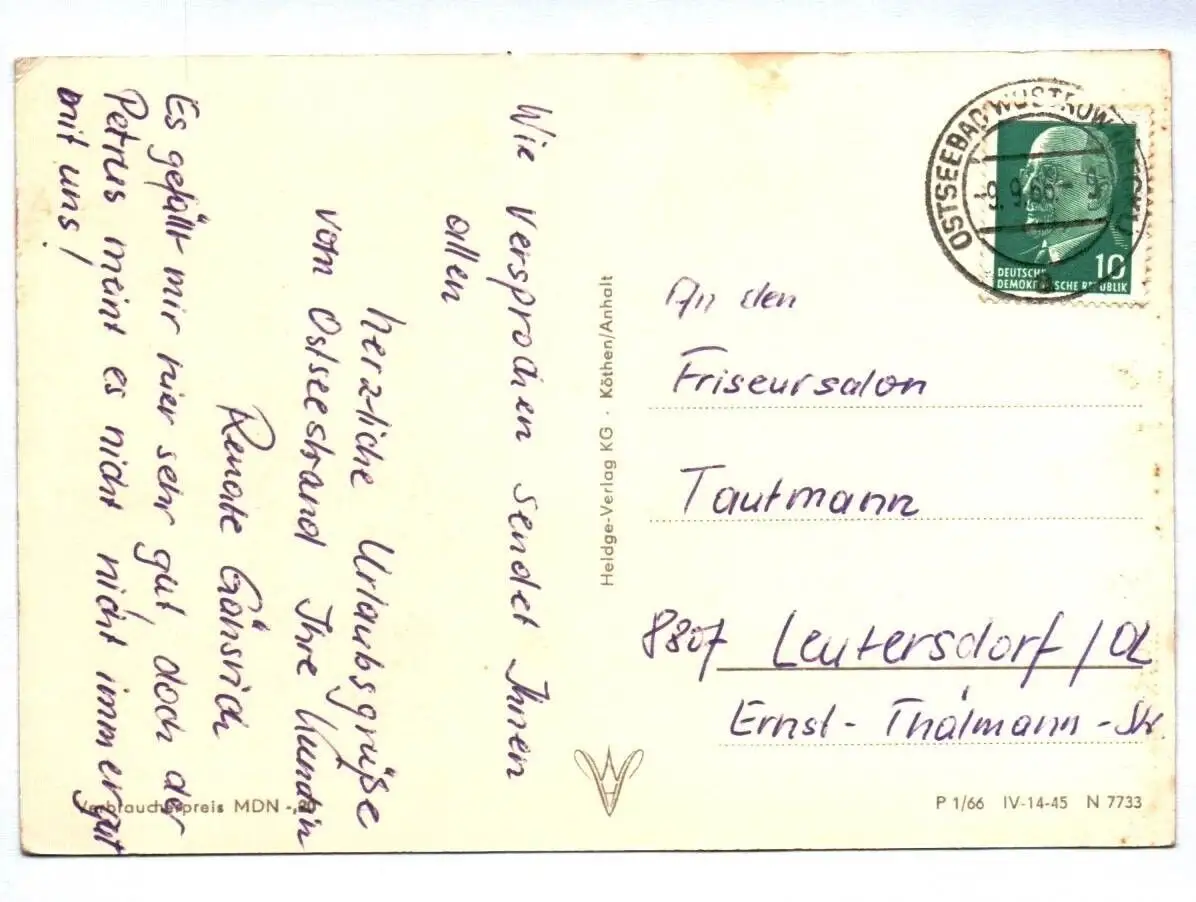 Wie versprochen sendet Ihnen
allen
herzliche Urlaubsgrüße
vom Ostseestrand Ihre Kundin
Renate Gänsrich
Es gefällt mir hier sehr gut, doch der
Petrus meint es nicht nicht immer gut
mit uns!
Verbraucherpreis MDN -,20
Heldge-Verlag KG · Köthen/Anhalt
OSTSEEBAD WUSTROW
9.9.66
DEUTSCHE
DEMOKRATISCHE REPUBLIK
10
An den
Friseursalon
Tautmann
8807 Leutersdorf / OL
Ernst-Thälmann-Str
P 1/66 IV-14-45 N 7733